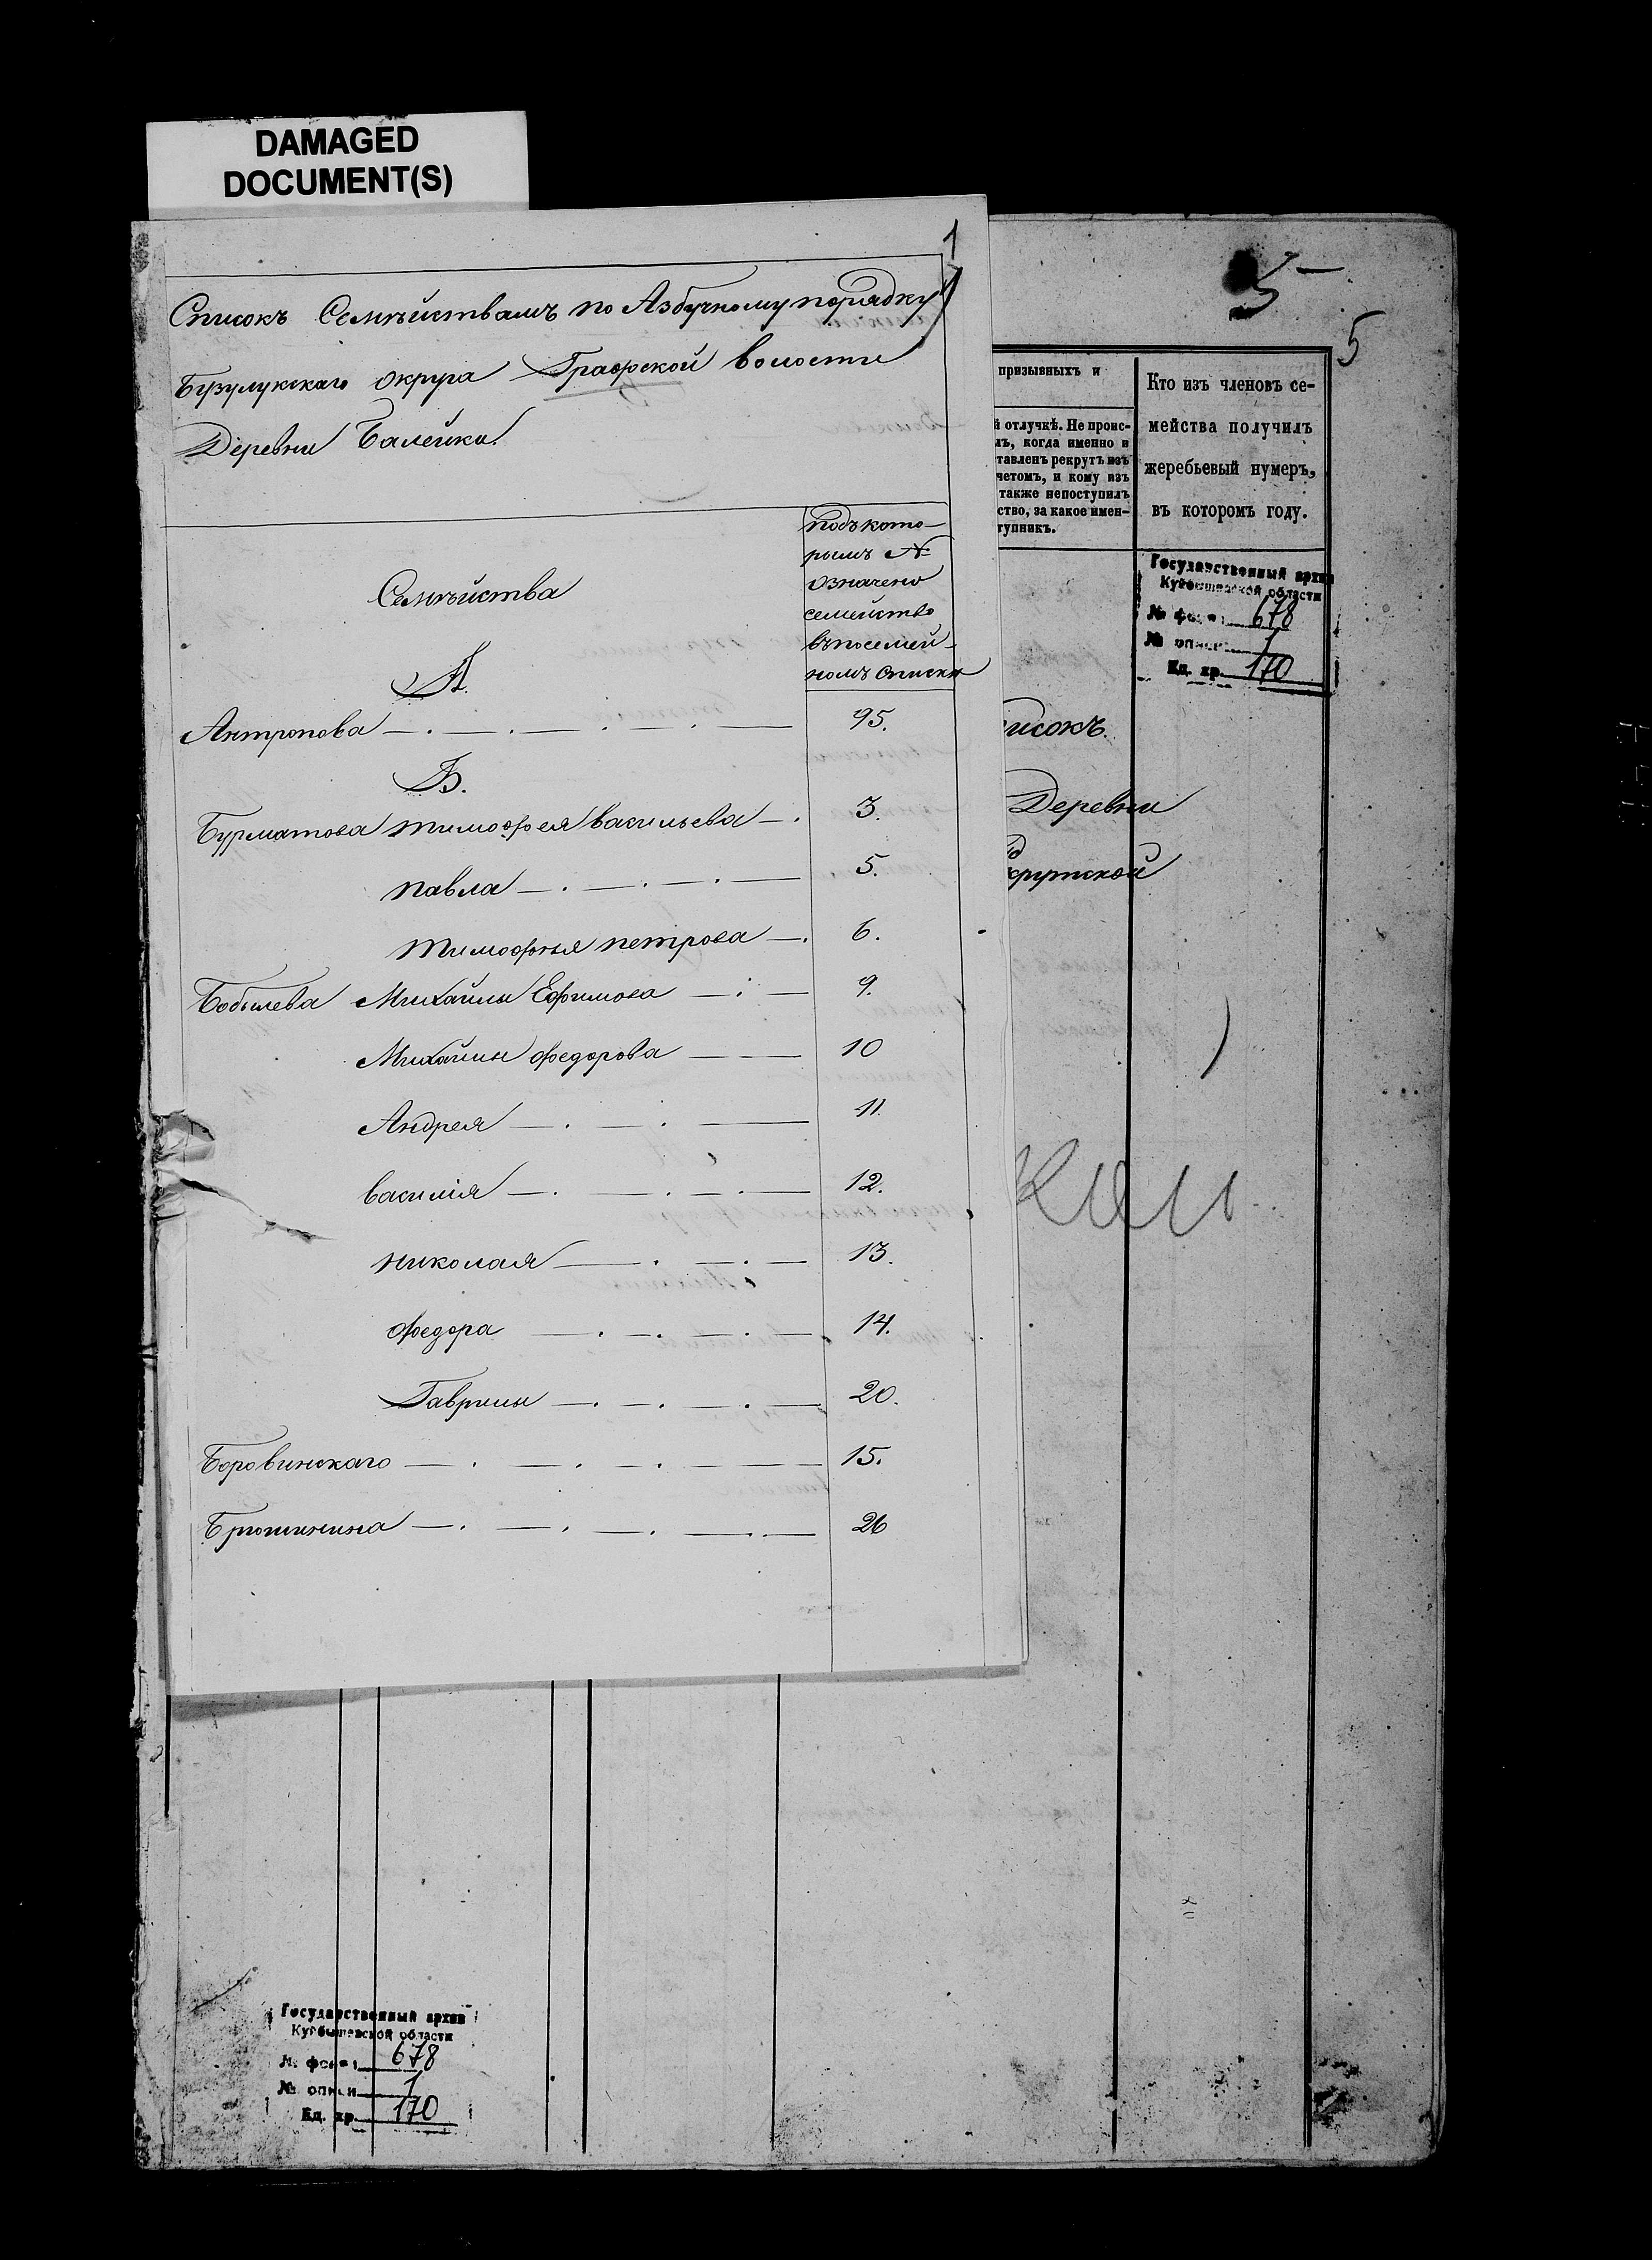 DAMAGED
DOCUMENT(S)
1
Списокъ Семѣйствамъ по Азбучному порядку
Бузулукскаго округа Графской волости
Деревни Балейки
Семѣйства
подъ кото-
рымъ №
означено
семейство
въ посемей-
номъ списки
А.
Антропова 95.
Б.
Бурматова тимофея васильева 3.
павла 5.
тимофѣя петрова 6.
Бобылева Михайлы Ефимова 9.
Михайлы федорова 10
Андрея 11.
василія 12.
николая 13.
федора 14.
Гаврилы 20.
Боровинскаго 15.
Брюшинина 26
5
5
призывныхъ и
й отлучкѣ. Не проис-
лъ, когда именно и
тавленъ рекрутъ изъ
четомъ, и кому изъ
также непоступилъ
ство, за какое имен-
тупникъ.
Кто изъ членовъ се-
мейства получилъ
жеребьевый нумеръ,
въ которомъ году.
Государственный архив
Куйбышевской области
№ фонд 678
№ описи 1
Ед. хр. 170
исокъ.
Деревни
крутской
Государственный архив
Куйбышевской области
№ фонд 678
№ описи 1
Ед. хр. 170